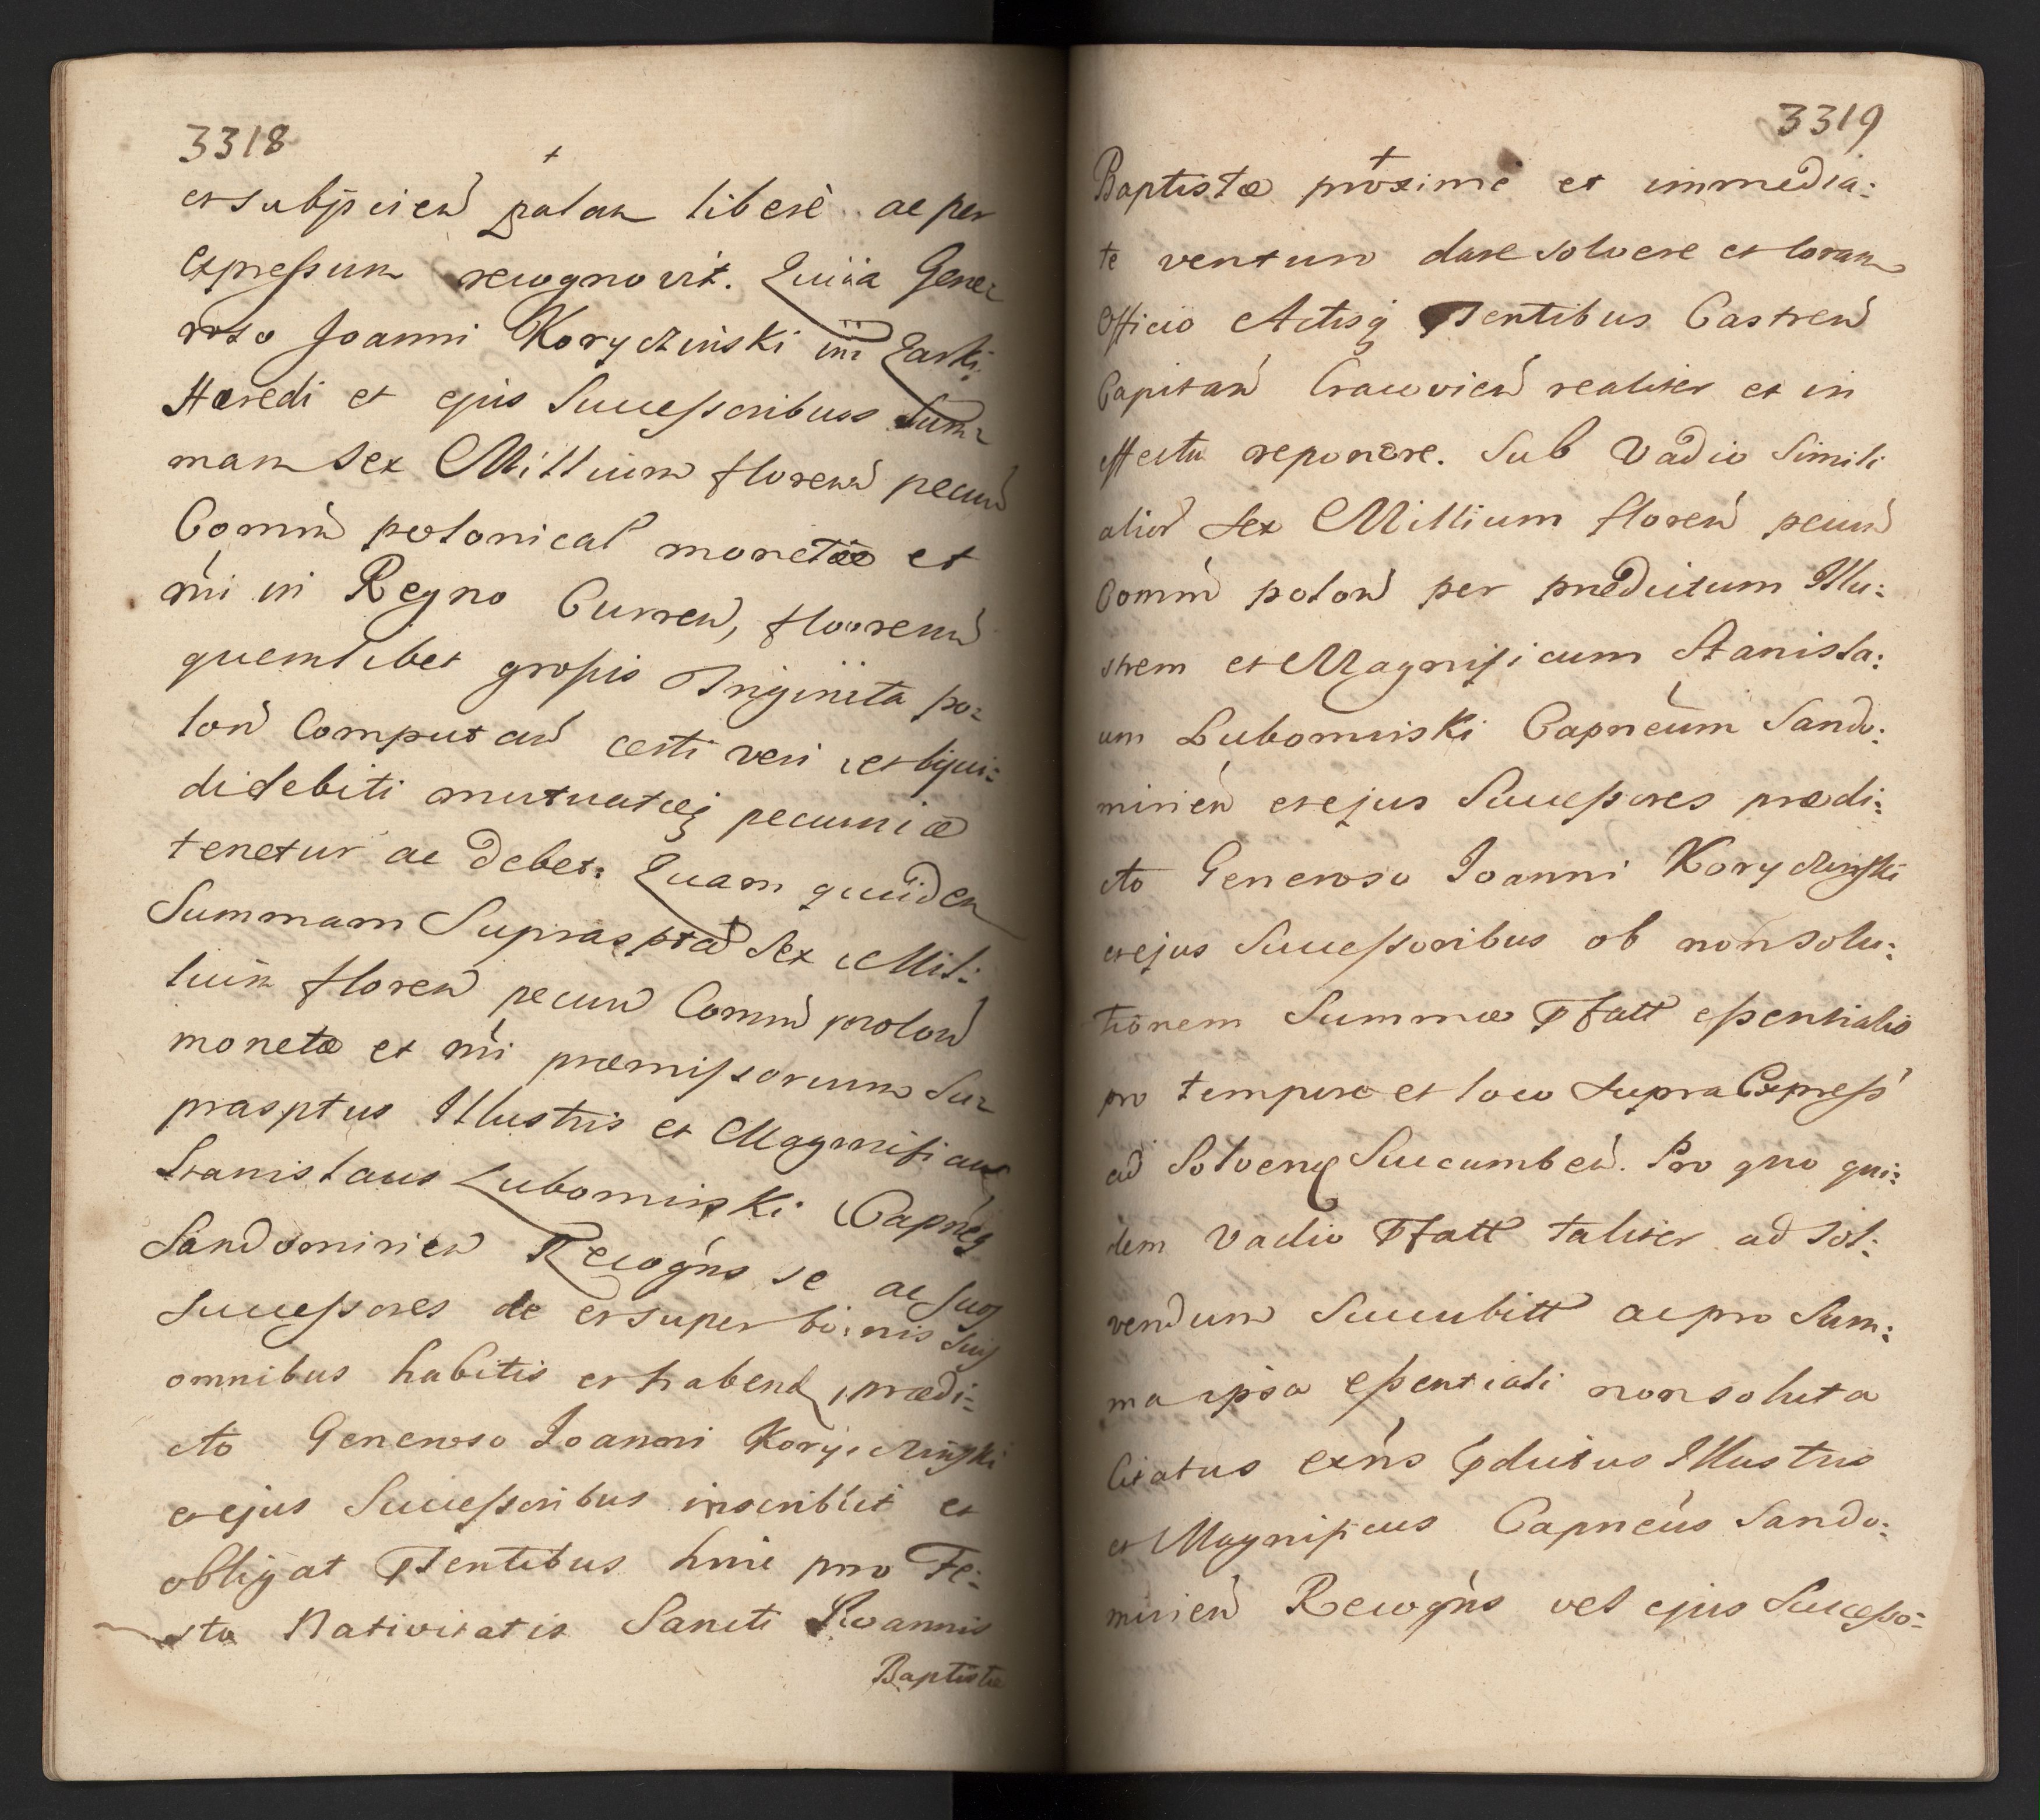 3318
+
et subjicien palam liberè ac per
expressum recognovit. Quia Gene-
roso Joanni Koryczinski in Zarki
Hæredi et ejus Successoribus Sum-
mam sex Millium floren pecun
Comun polonical monetæ et
nri in Regno Curren, florenum
quemlibet grossis Triginta po-
lon Computan certi veri et liqui-
di debiti mutuatæq pecuniæ
tenetur ac debet. Quam quidem
Summam Suprasptã Sex Mil-
lium floren pecun Comun polon
monetæ et nri præmissorum Su-
prasptus Illustris et Magnificus
Stanislaus Lubomirski Capneus
Sandomirien Recogns se ac suos
Successores de et super bonis suis
omnibus habitis et habend, prædi-
cto Generoso Joanni Koryczinski
et ejus Successoribus inscribit et
obligat Pstentibus hinc pro Fe-
sto Nativitatis Sancti Joannis
Baptistæ
3319
+
Baptistæ proximè et immedia-
te venturo dare solvere et coram
Officio Actisq Pstentibus Castren
Capitan Cracovien realiter et in
effectu reponere. Sub Vadio Simili
alior sex Millium floren pecun
Comun polon per prædictum Illu-
strem et Magnificum Stanisla-
um Lubomirski Capneum Sando-
mirien et ejus Successores prædi-
cto Generoso Joanni Koryczinski
et ejus Successoribus ob non solu-
tionem Summæ Pfatt essentialis
pro tempore et loco supra Express
ad Solvend Succumben. Pro quo qui-
dem Vadio Pfatt taliter ad sol-
vendum Succubitt ac pro Sum-
ma ipsa essentiali non soluta
Citatus exns Pdictus Illustris
et Magnificus Capneus Sando-
mirien Recogns vel ejus Successo-